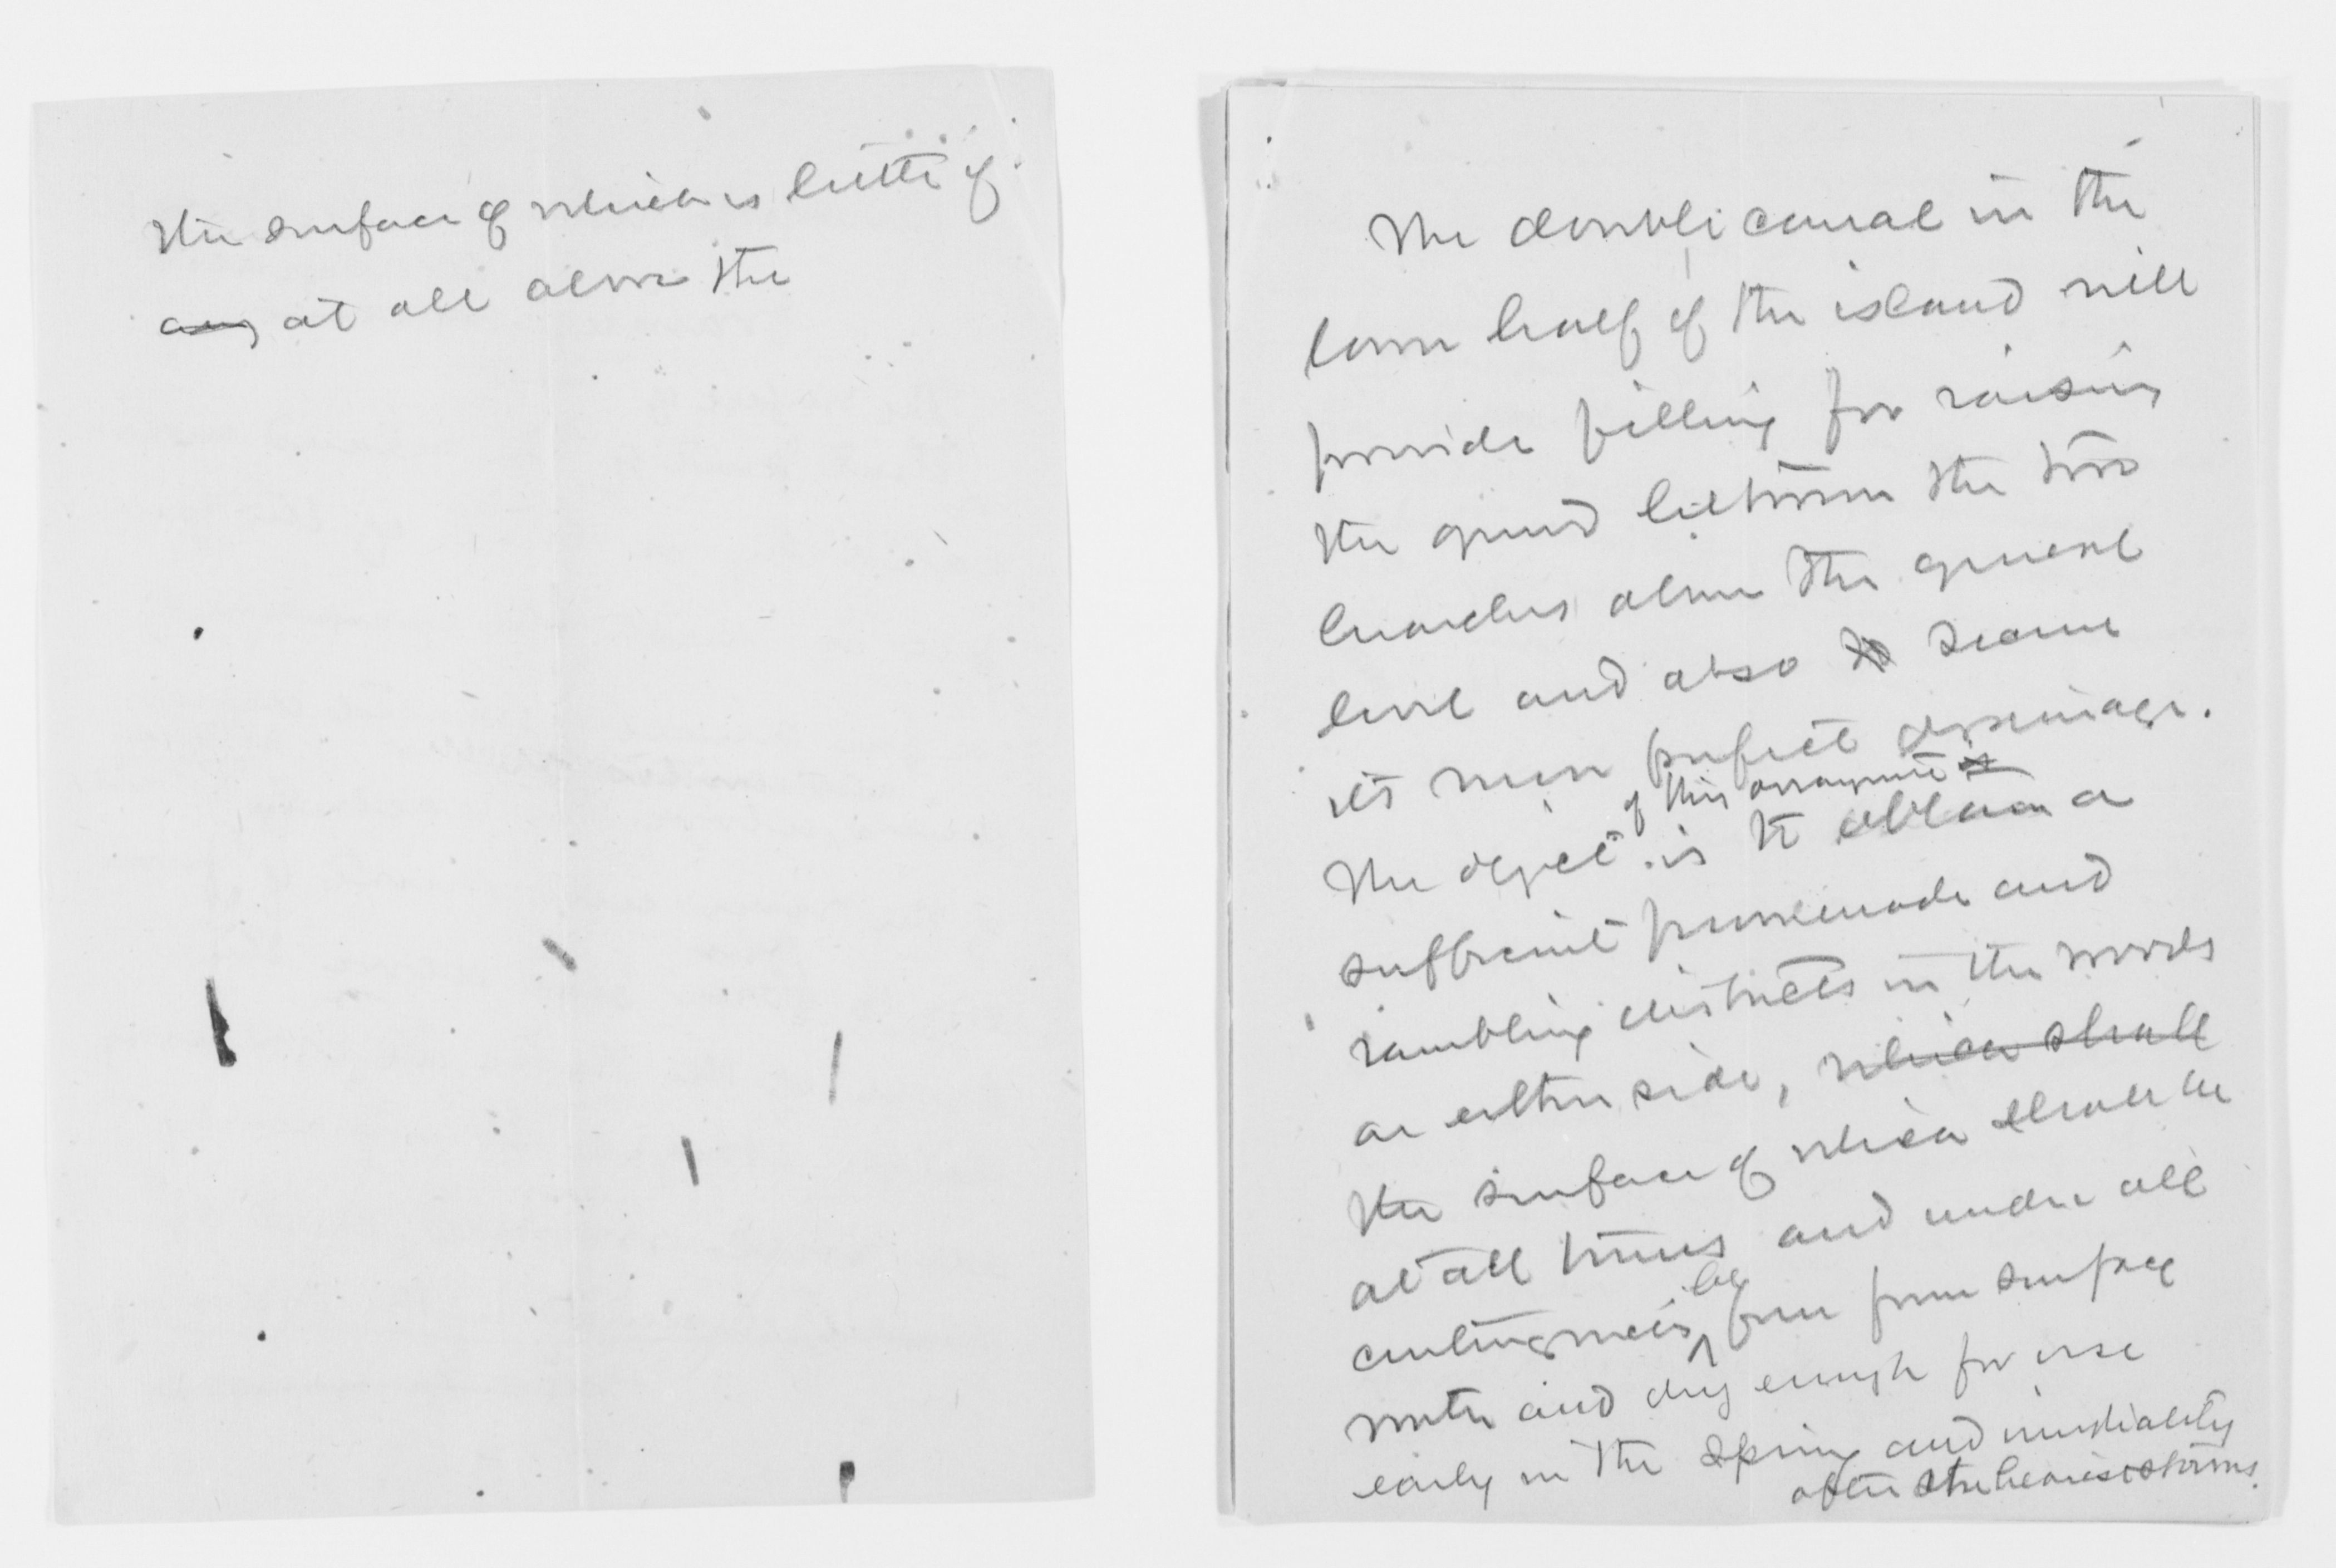 the surface of which is little if
any at all above the
The double canal in the
lower half of the island will
provide filling for raising
the ground between the two
branches above the general
level and also to secure
its more perfect drainage.
of this arrangement is
The object is to obtain a
sufficient promenade and
rambling districts in the woods
on either side, which shall
the surface of which shall be
at all times and under all
contingencies be free from surface
water and dry enough for use
early in the Spring and immediately
after the heaviest storms.